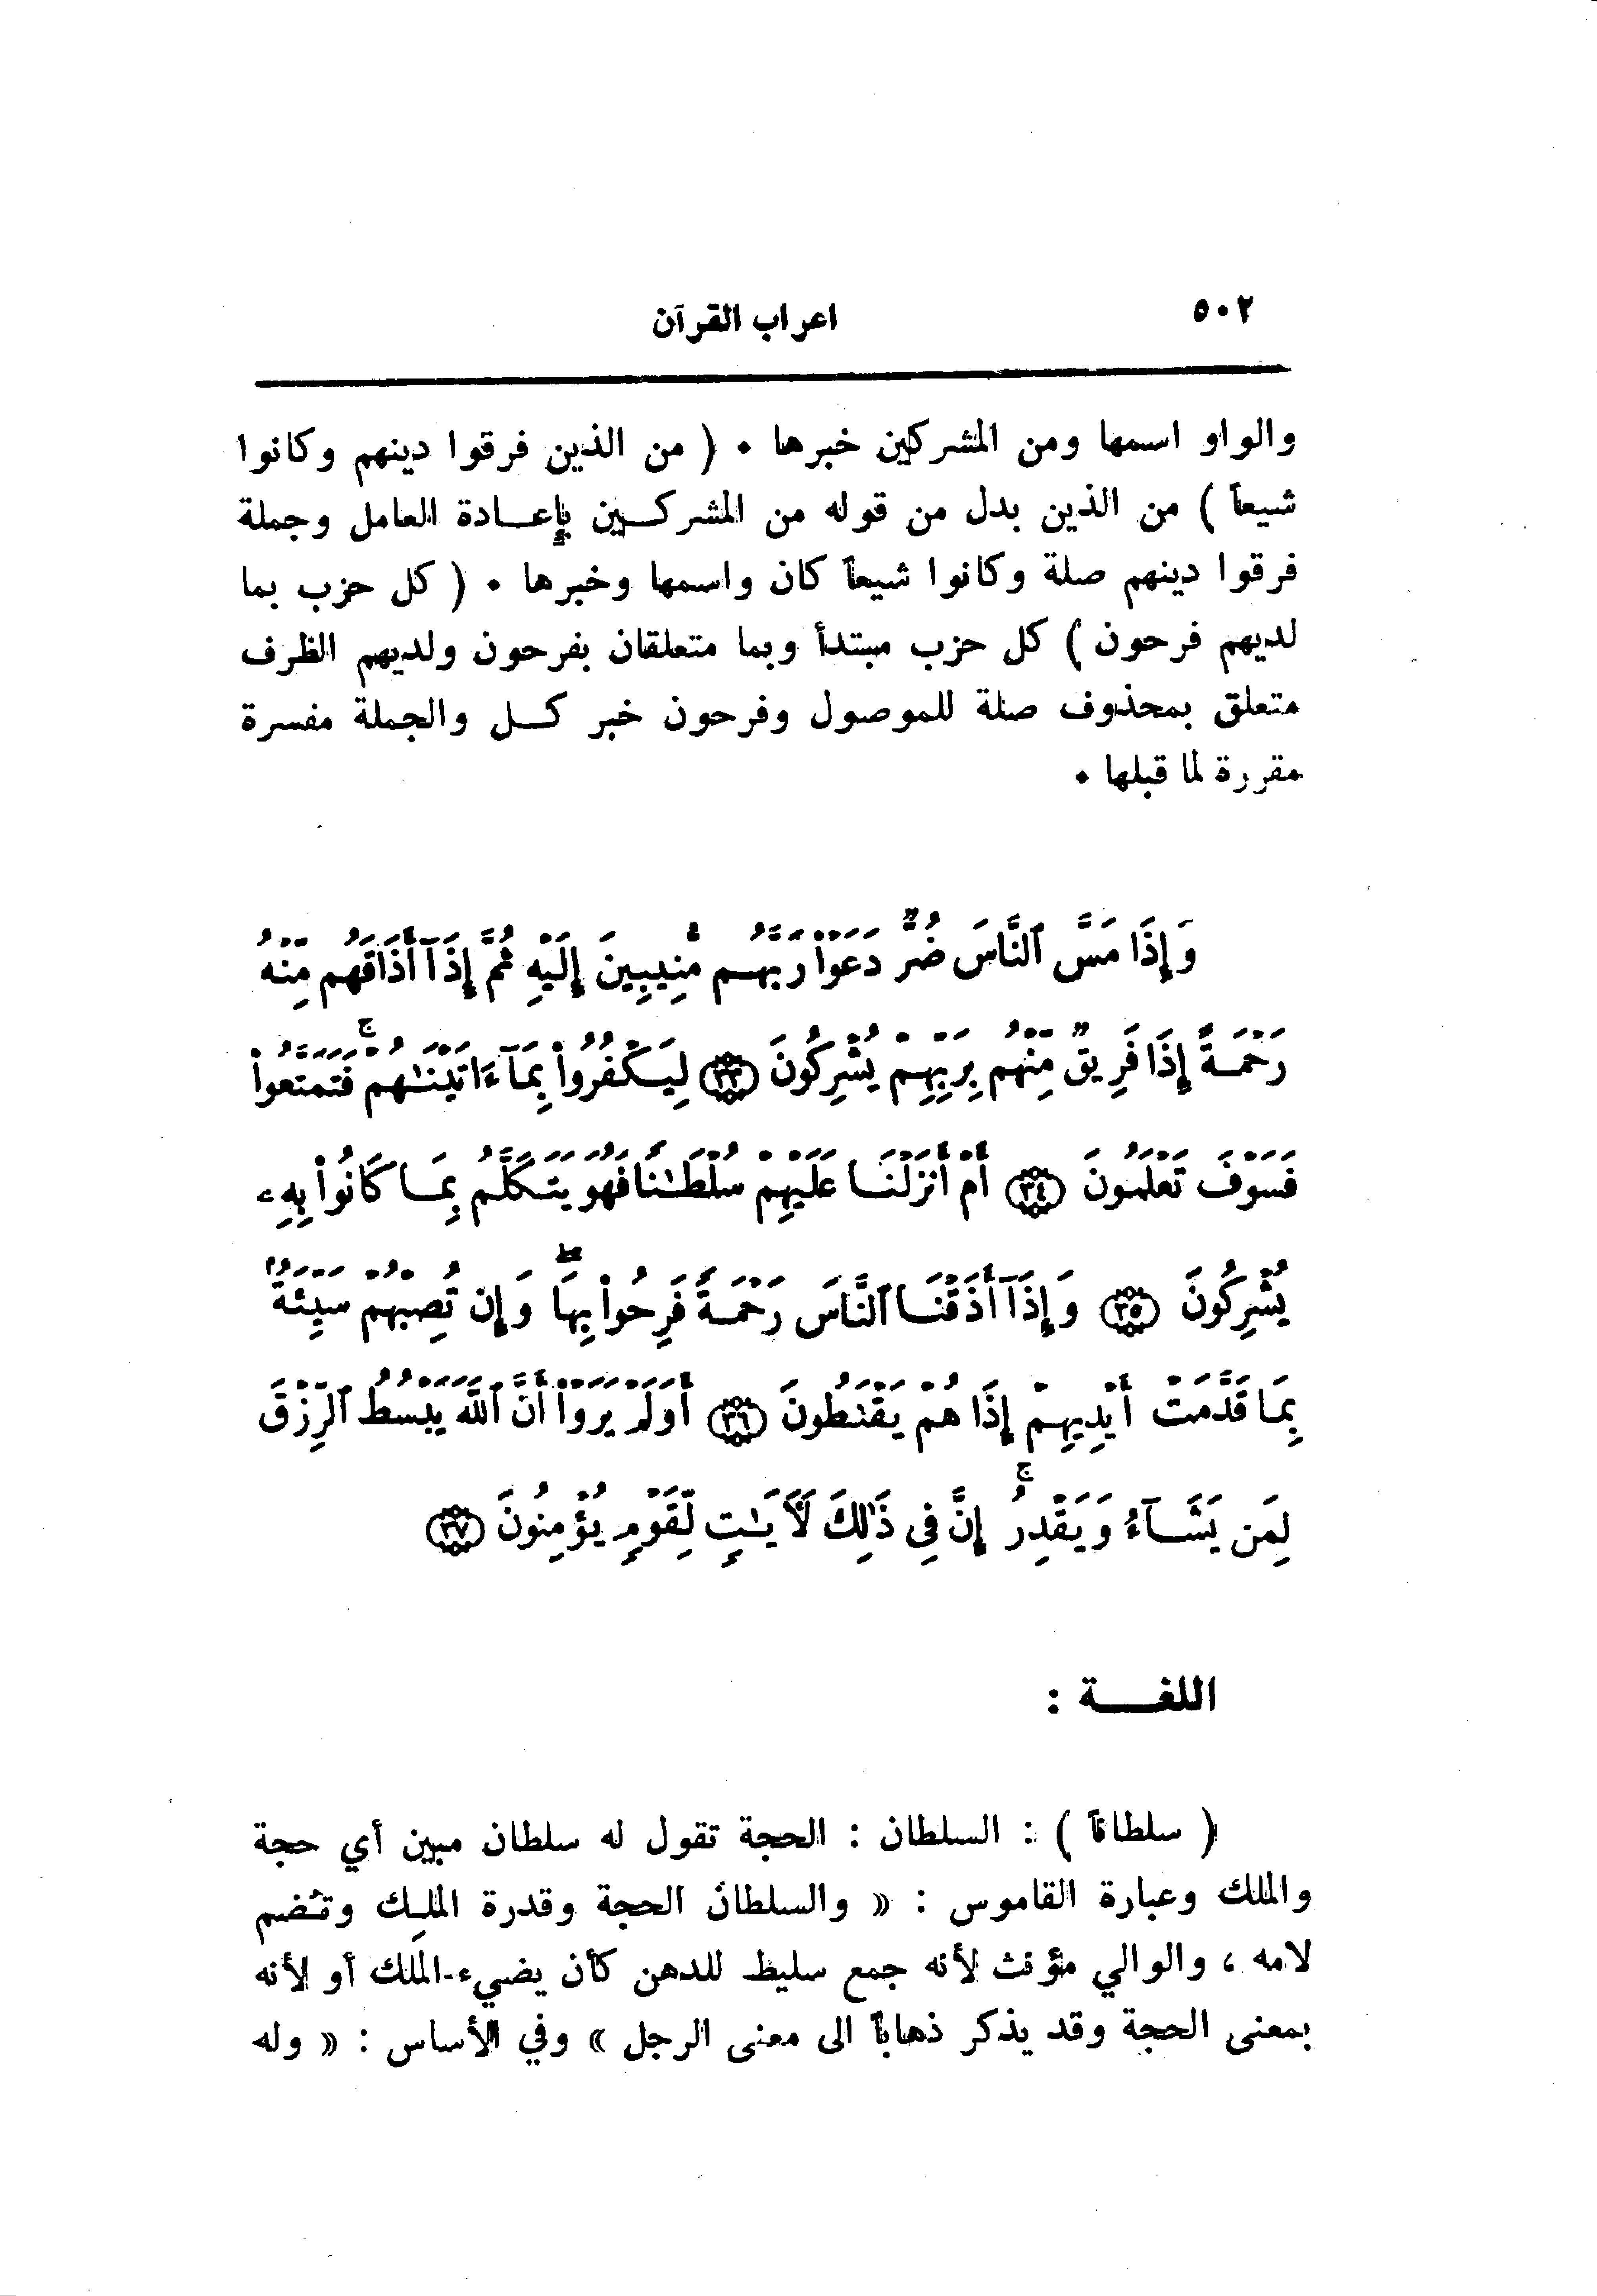 ٥٠٢
اعراب القرآن
والواو اسمها ومن المشركين خبرها ٠ ( من الذين فرقوا دينهم وكانوا
شيعاً ) من الذين بدل من قوله من المشركين بإعادة العامل وجملة
فرقوا دينهم صلة وكانوا شيعاً كان واسمها وخبرها ٠ ( كل حزب بما
لديهم فرحون ) كل حزب مبتدأ وبما متعلقان بفرحون ولديهم الظرف
متعلق بمحذوف صلة للموصول وفرحون خبر كل والجملة مفسرة
مقررة لما قبلها ٠
وَإِذَا مَسَّ ٱلنَّاسَ ضُرٌّ دَعَوْاْ رَبَّهُم مُّنِيبِينَ إِلَيْهِ ثُمَّ إِذَآ أَذَاقَهُم مِّنْهُ
رَحْمَةً إِذَا فَرِيقٌ مِّنْهُم بِرَبِّهِمْ يُشْرِكُونَ ﴿٣٣﴾ لِيَكْفُرُواْ بِمَآ ءَاتَيْنَٰهُمْ ۚ فَتَمَتَّعُواْ
فَسَوْفَ تَعْلَمُونَ ﴿٣٤﴾ أَمْ أَنزَلْنَا عَلَيْهِمْ سُلْطَٰنًا فَهُوَ يَتَكَلَّمُ بِمَا كَانُواْ بِهِۦ
يُشْرِكُونَ ﴿٣٥﴾ وَإِذَآ أَذَقْنَا ٱلنَّاسَ رَحْمَةً فَرِحُواْ بِهَا ۖ وَإِن تُصِبْهُمْ سَيِّئَةٌۢ
بِمَا قَدَّمَتْ أَيْدِيهِمْ إِذَا هُمْ يَقْنَطُونَ ﴿٣٦﴾ أَوَلَمْ يَرَوْاْ أَنَّ ٱللَّهَ يَبْسُطُ ٱلرِّزْقَ
لِمَن يَشَآءُ وَيَقْدِرُ ۚ إِنَّ فِى ذَٰلِكَ لَأٓيَٰتٍ لِّقَوْمٍ يُؤْمِنُونَ ﴿٣٧﴾
اللغة :
( سلطاناً ) : السلطان : الحجة تقول له سلطان مبين أي حجة
والملك وعبارة القاموس : « والسلطان الحجة وقدرة الملِك وتضم
لامه ، والوالي مؤنث لأنه جمع سليط للدهن كأن يضيء الملك أو لأنه
بمعنى الحجة وقد يذكر ذهاباً الى معنى الرجل » وفي الأساس : « وله